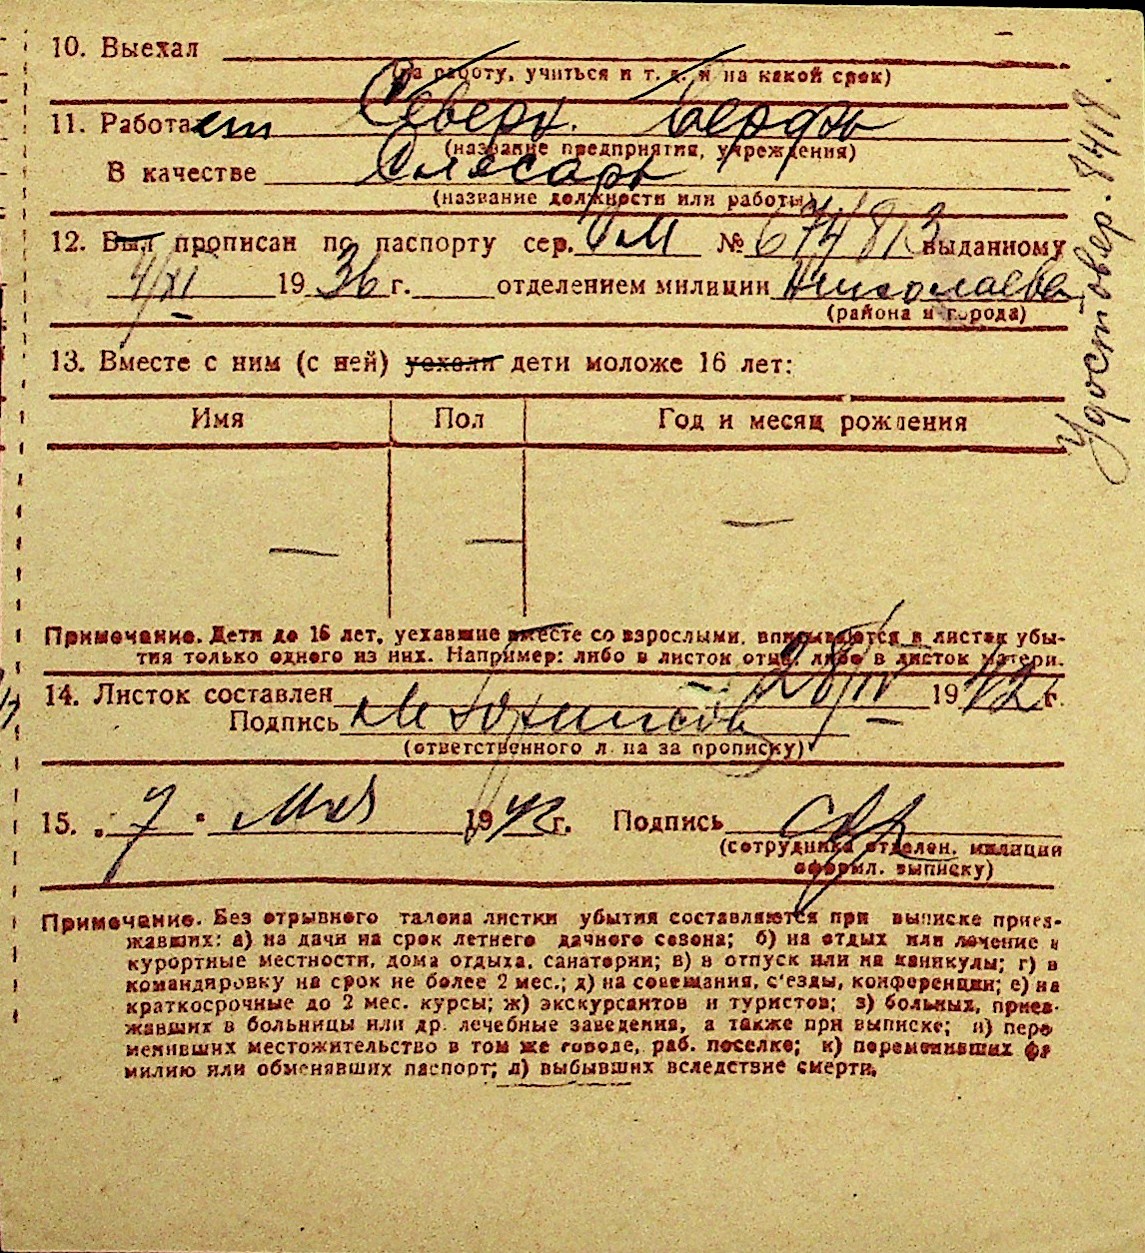 10. Выехал
(на работу, учиться и т. д. и на какой срок)
11. Работает Северн. верфь
(название предприятия, учреждения)
В качестве Слесарь
(название должности или работы)
12. Был прописан по паспорту сер. № 674813 выданному
4/XI 1936 г. отделением милиции Николаева
(района и города)
13. Вместе с ним (с ней) уехали дети моложе 16 лет:
Имя Пол Год и месяц рождения
— — —
Примечание. Дети до 16 лет, уехавшие вместе со взрослыми, вписываются в листок убы-
тия только одного из них. Например: либо в листок отца, либо в листок матери.
14. Листок составлен 28/IV 1942 г.
Подпись
(ответственного лица за прописку)
15. „ 7 " Мая 1942 г. Подпись
(сотрудника отделен. милиции
оформл. выписку)
Примечание. Без отрывного талона листки убытия составляются при выписке приез-
жавших: а) на дачи на срок летнего дачного сезона; б) на отдых или лечение в
курортные местности, дома отдыха, санатории; в) в отпуск или на каникулы; г) в
командировку на срок не более 2 мес.; д) на совещания, с'езды, конференции; е) на
краткосрочные до 2 мес. курсы; ж) экскурсантов и туристов; з) больных, приез-
жавших в больницы или др. лечебные заведения, а также при выписке; и) пере
менивших местожительство в том же городе, раб. поселке; к) переменивших фа
милию или обменявших паспорт; л) выбывших вследствие смерти.
Удостовер. 8418.